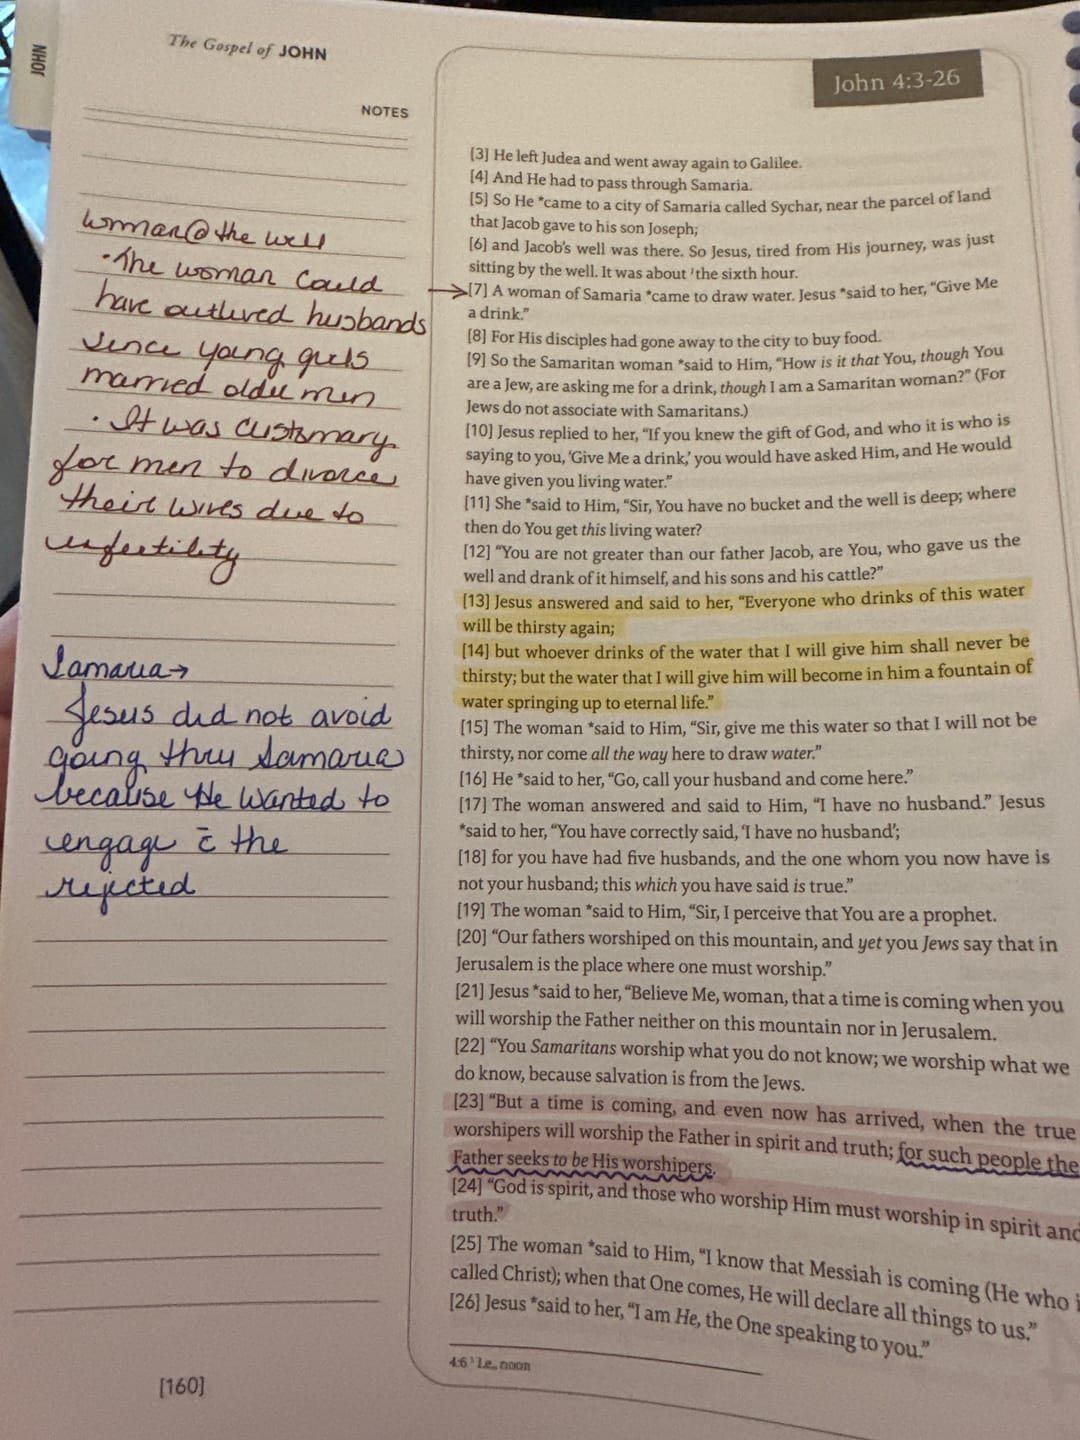 JOHN
The Gospel of JOHN
NOTES
woman@the well
·The woman could
have outlived husbands
since young girls
married older men
·It was customary
for men to divorce
their wives due to
infertility
Samaria→
Jesus did not avoid
going thru Samaria
because He wanted to
engage c̄ the
rejected
[160]
John 4:3-26
[3] He left Judea and went away again to Galilee.
[4] And He had to pass through Samaria.
[5] So He *came to a city of Samaria called Sychar, near the parcel of land
that Jacob gave to his son Joseph;
[6] and Jacob's well was there. So Jesus, tired from His journey, was just
sitting by the well. It was about ¹the sixth hour.
→[7] A woman of Samaria *came to draw water. Jesus *said to her, “Give Me
a drink.”
[8] For His disciples had gone away to the city to buy food.
[9] So the Samaritan woman *said to Him, “How is it that You, though You
are a Jew, are asking me for a drink, though I am a Samaritan woman?” (For
Jews do not associate with Samaritans.)
[10] Jesus replied to her, “If you knew the gift of God, and who it is who is
saying to you, ‘Give Me a drink,’ you would have asked Him, and He would
have given you living water.”
[11] She *said to Him, “Sir, You have no bucket and the well is deep; where
then do You get this living water?
[12] “You are not greater than our father Jacob, are You, who gave us the
well and drank of it himself, and his sons and his cattle?”
[13] Jesus answered and said to her, “Everyone who drinks of this water
will be thirsty again;
[14] but whoever drinks of the water that I will give him shall never be
thirsty; but the water that I will give him will become in him a fountain of
water springing up to eternal life.”
[15] The woman *said to Him, “Sir, give me this water so that I will not be
thirsty, nor come all the way here to draw water.”
[16] He *said to her, “Go, call your husband and come here.”
[17] The woman answered and said to Him, “I have no husband.” Jesus
*said to her, “You have correctly said, ‘I have no husband’;
[18] for you have had five husbands, and the one whom you now have is
not your husband; this which you have said is true.”
[19] The woman *said to Him, “Sir, I perceive that You are a prophet.
[20] “Our fathers worshiped on this mountain, and yet you Jews say that in
Jerusalem is the place where one must worship.”
[21] Jesus *said to her, “Believe Me, woman, that a time is coming when you
will worship the Father neither on this mountain nor in Jerusalem.
[22] “You Samaritans worship what you do not know; we worship what we
do know, because salvation is from the Jews.
[23] “But a time is coming, and even now has arrived, when the true
worshipers will worship the Father in spirit and truth; for such people the
Father seeks to be His worshipers.
[24] “God is spirit, and those who worship Him must worship in spirit and
truth.”
[25] The woman *said to Him, “I know that Messiah is coming (He who
called Christ); when that One comes, He will declare all things to us.”
[26] Jesus *said to her, “I am He, the One speaking to you.”
4:6 ¹ I.e., noon